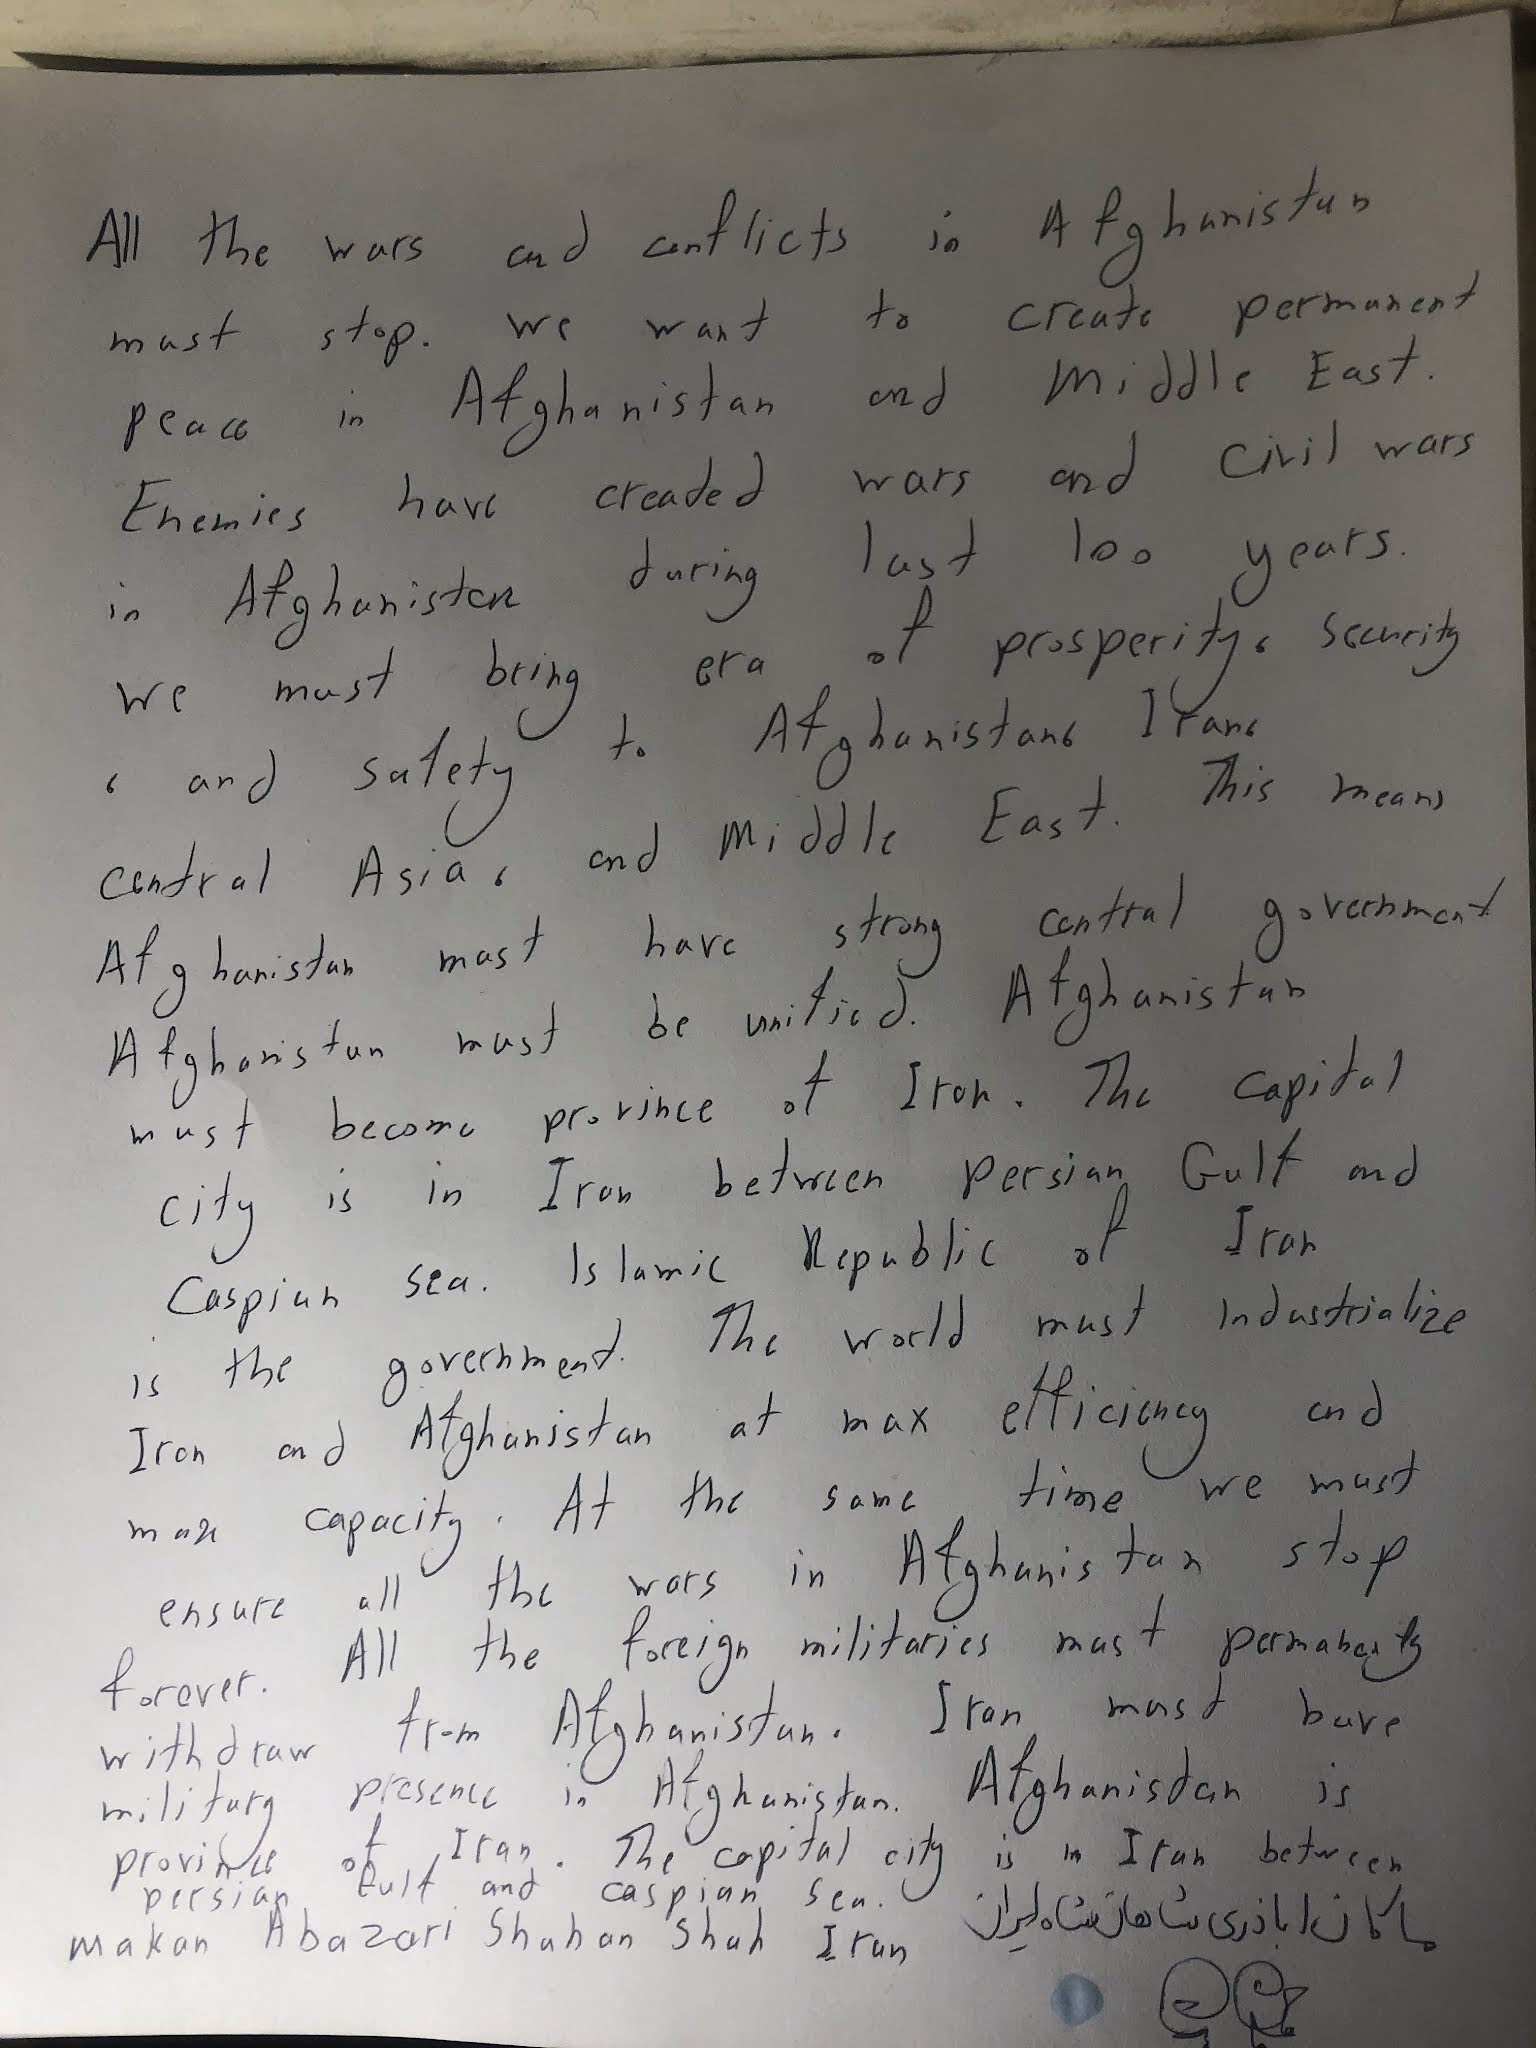 All the wars and conflicts in Afghanistan
must stop. We want to create permanent
peace in Afghanistan and Middle East.
Enemies have created wars and civil wars
in Afghanistan during last 100 years.
We must bring era of prosperity, security
, and safety to Afghanistan, Iran,
central Asia, and Middle East. This means
Afghanistan must have strong central government
Afghanistan must be unified. Afghanistan
must become province of Iran. The capital
city is in Iran between Persian Gulf and
Caspian sea. Islamic Republic of Iran
is the government. The world must industrialize
Iran and Afghanistan at max efficiency and
max capacity. At the same time we must
ensure all the wars in Afghanistan stop
forever. All the foreign militaries must permanently
withdraw from Afghanistan. Iran must have
military presence in Afghanistan. Afghanistan is
province of Iran. The capital city is in Iran between
persian Gulf and caspian sea.
makan Abazari Shahan Shah Iran ماکان اباذری شاهان شاه ایران